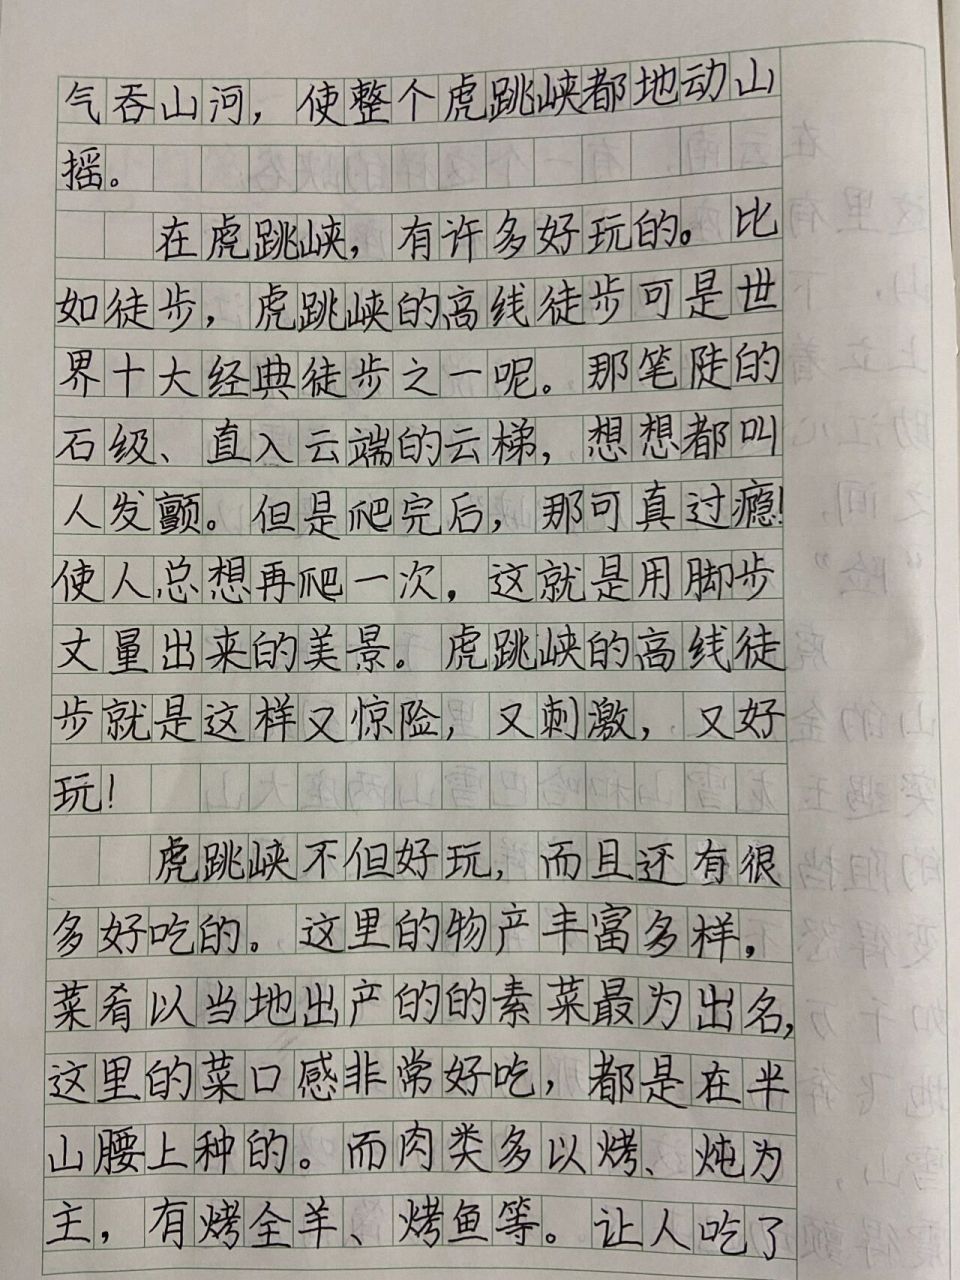 气吞山河，使整个虎跳峡都地动山
摇。
在虎跳峡，有许多好玩的。比
如徒步，虎跳峡的高线徒步可是世
界十大经典徒步之一呢。那笔陡的
石级、直入云端的云梯，想想都叫
人发颤。但是爬完后，那可真过瘾！
使人总想再爬一次，这就是用脚步
丈量出来的美景。虎跳峡的高线徒
步就是这样又惊险，又刺激，又好
玩！
虎跳峡不但好玩，而且还有很
多好吃的。这里的物产丰富多样，
菜肴以当地出产的的素菜最为出名，
这里的菜口感非常好吃，都是在半
山腰上种的。而肉类多以烤、炖为
主，有烤全羊、烤鱼等。让人吃了